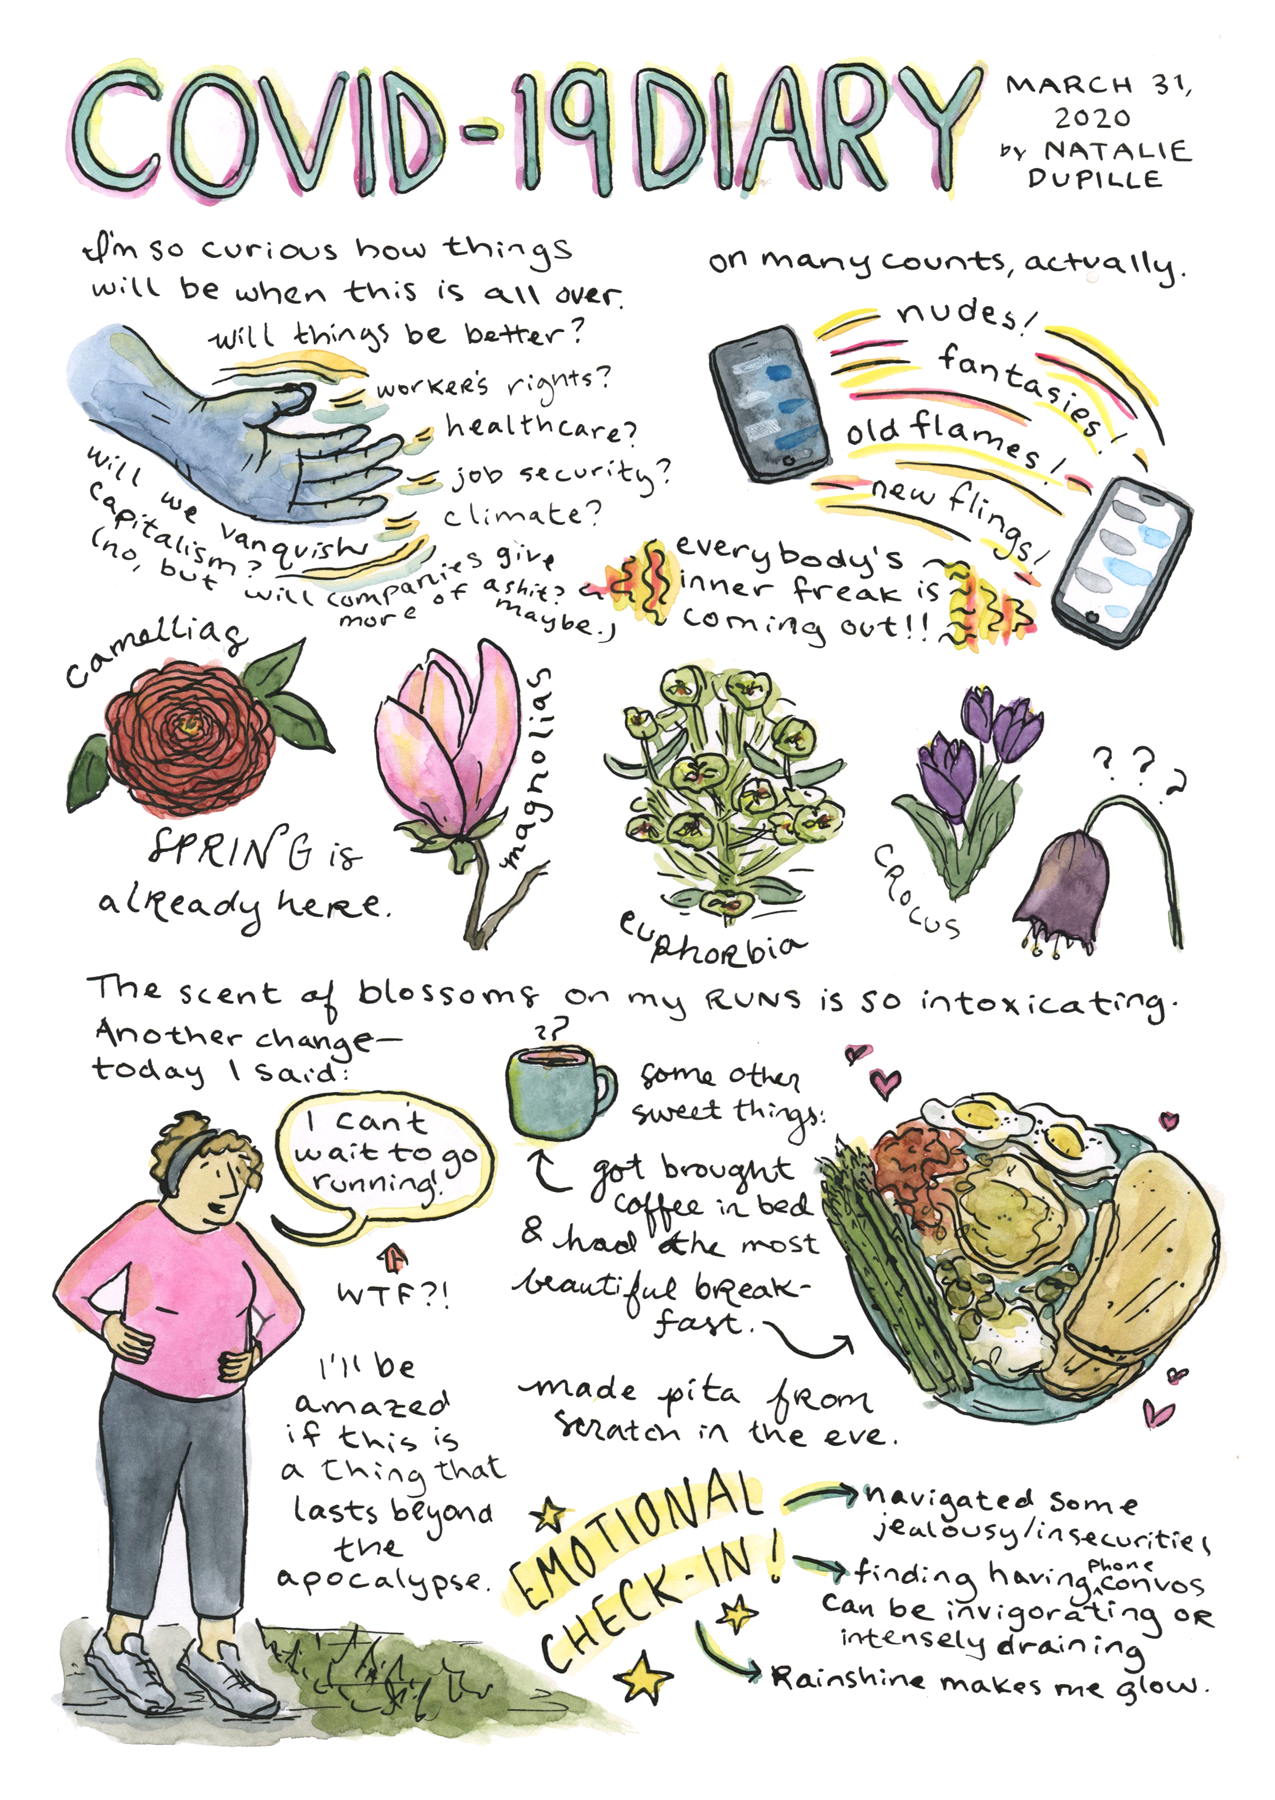 COVID-19 DIARY
MARCH 31,
2020
by NATALIE
DUPILLE
I'm so curious how things
will be when this is all over.
will things be better?
worker's rights?
healthcare?
job security?
climate?
will we vanquish
capitalism?
(no, but will companies give
more of a shit?
maybe.)
on many counts, actually.
nudes!
fantasies!
old flames!
new flings!
everybody's
inner freak is
coming out!!
camellias
magnolias
euphorbia
CROCUS
???
SPRING is
already here.
The scent of blossoms on my RUNS is so intoxicating.
Another change—
today I said:
I can't
wait to go
running!
WTF?!
I'll be
amazed
if this is
a thing that
lasts beyond
the
apocalypse.
some other
sweet things:
got brought
coffee in bed
& had the most
beautiful break-
fast.
made pita from
scratch in the eve.
EMOTIONAL
CHECK-IN!
navigated some
jealousy/insecurities
finding having phone convos
can be invigorating OR
intensely draining
Rainshine makes me glow.